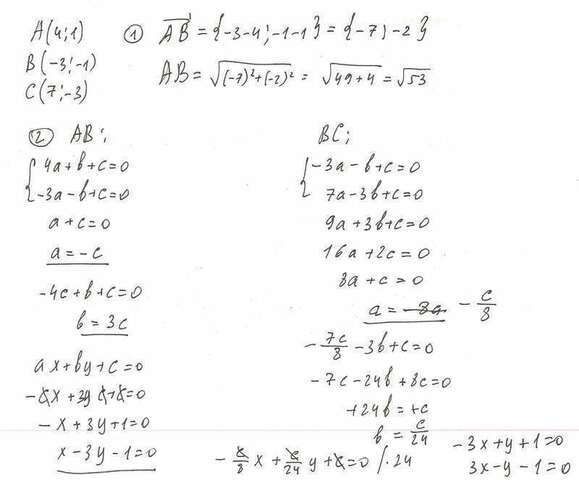 A(4;1)
B(-3;-1)
C(7;-3)
① AB = {-3-4;-1-1} = {-7;-2}
AB = √(-7)²+(-2)² = √49+4 = √53
② AB;
{ 4a+b+c=0
-3a-b+c=0
a+c=0
a=-c
-4c+b+c=0
b=3c
ax+by+c=0
-cx+3cy+c=0
-x+3y+1=0
x-3y-1=0
BC;
{ -3a-b+c=0
7a-3b+c=0
9a+3b+c=0
16a+2c=0
8a+c=0
a= -8a - c/8
- 7c/8 - 3b+c=0
-7c-24b+8c=0
+24b=+c
b = c/24
- c/8 x + c/24 y + c=0 /·24
-3x+y+1=0
3x-y-1=0